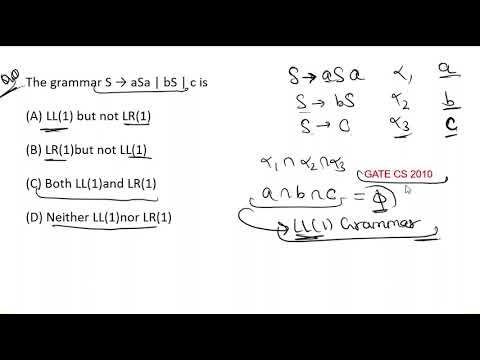 The grammar S → aSa | bS | c is
(A) LL(1) but not LR(1)
(B) LR(1)but not LL(1)
(C) Both LL(1)and LR(1)
(D) Neither LL(1)nor LR(1)
S → aSa α₁ a
S → bS α₂ b
S → C α₃ c
α₁ ∩ α₂ ∩ α₃
GATE CS 2010
a ∩ b ∩ c = ϕ
→ LL(1) Grammar